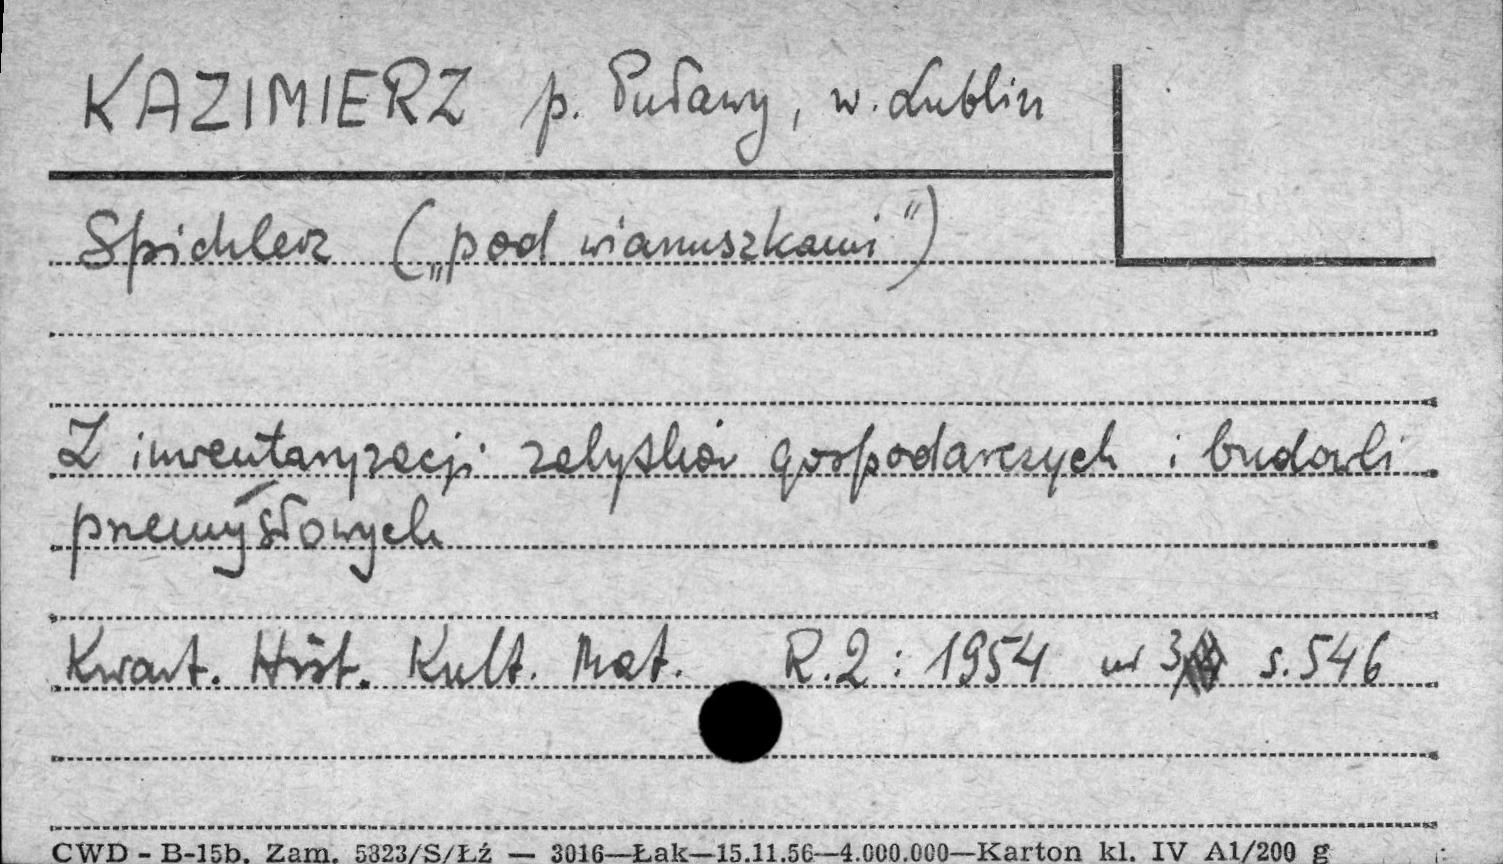 KAZIMIERZ p. Puławy, w. Lublin
Spichlerz („pod wianuszkami")
Z inwentaryzacji zabytków gospodarczych i budowli
przemysłowych
Kwart. Hist. Kult. Mat. R.2: 1954 nr 3 s. 546
CWD - B-15b. Zam. 5323/S/Łź — 3016—Łak—15.11.56—4.000.000—Karton kl. IV A1/200 g